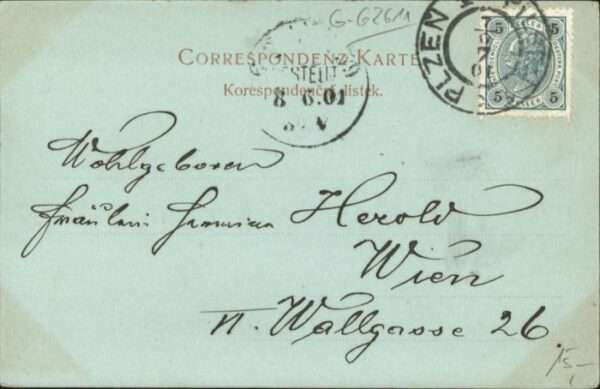 G-G2611
CORRESPONDENZ-KARTE
Korespondenční lístek.
BESTELLT
8 6.01
V
PLZEŇ
5 5
5 HELLER 5
Wohlgeboren
Fräulein Hermine Herold
Wien
VI. Wallgasse 26.
15,-